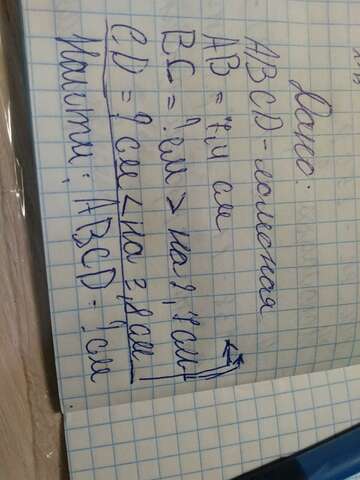 Дано:
ABCD - ломаная
AB = 7,4 см
BC = ? см > на 2,7 см
CD = ? см < на 2,8 см
Найти: ABCD - ? см